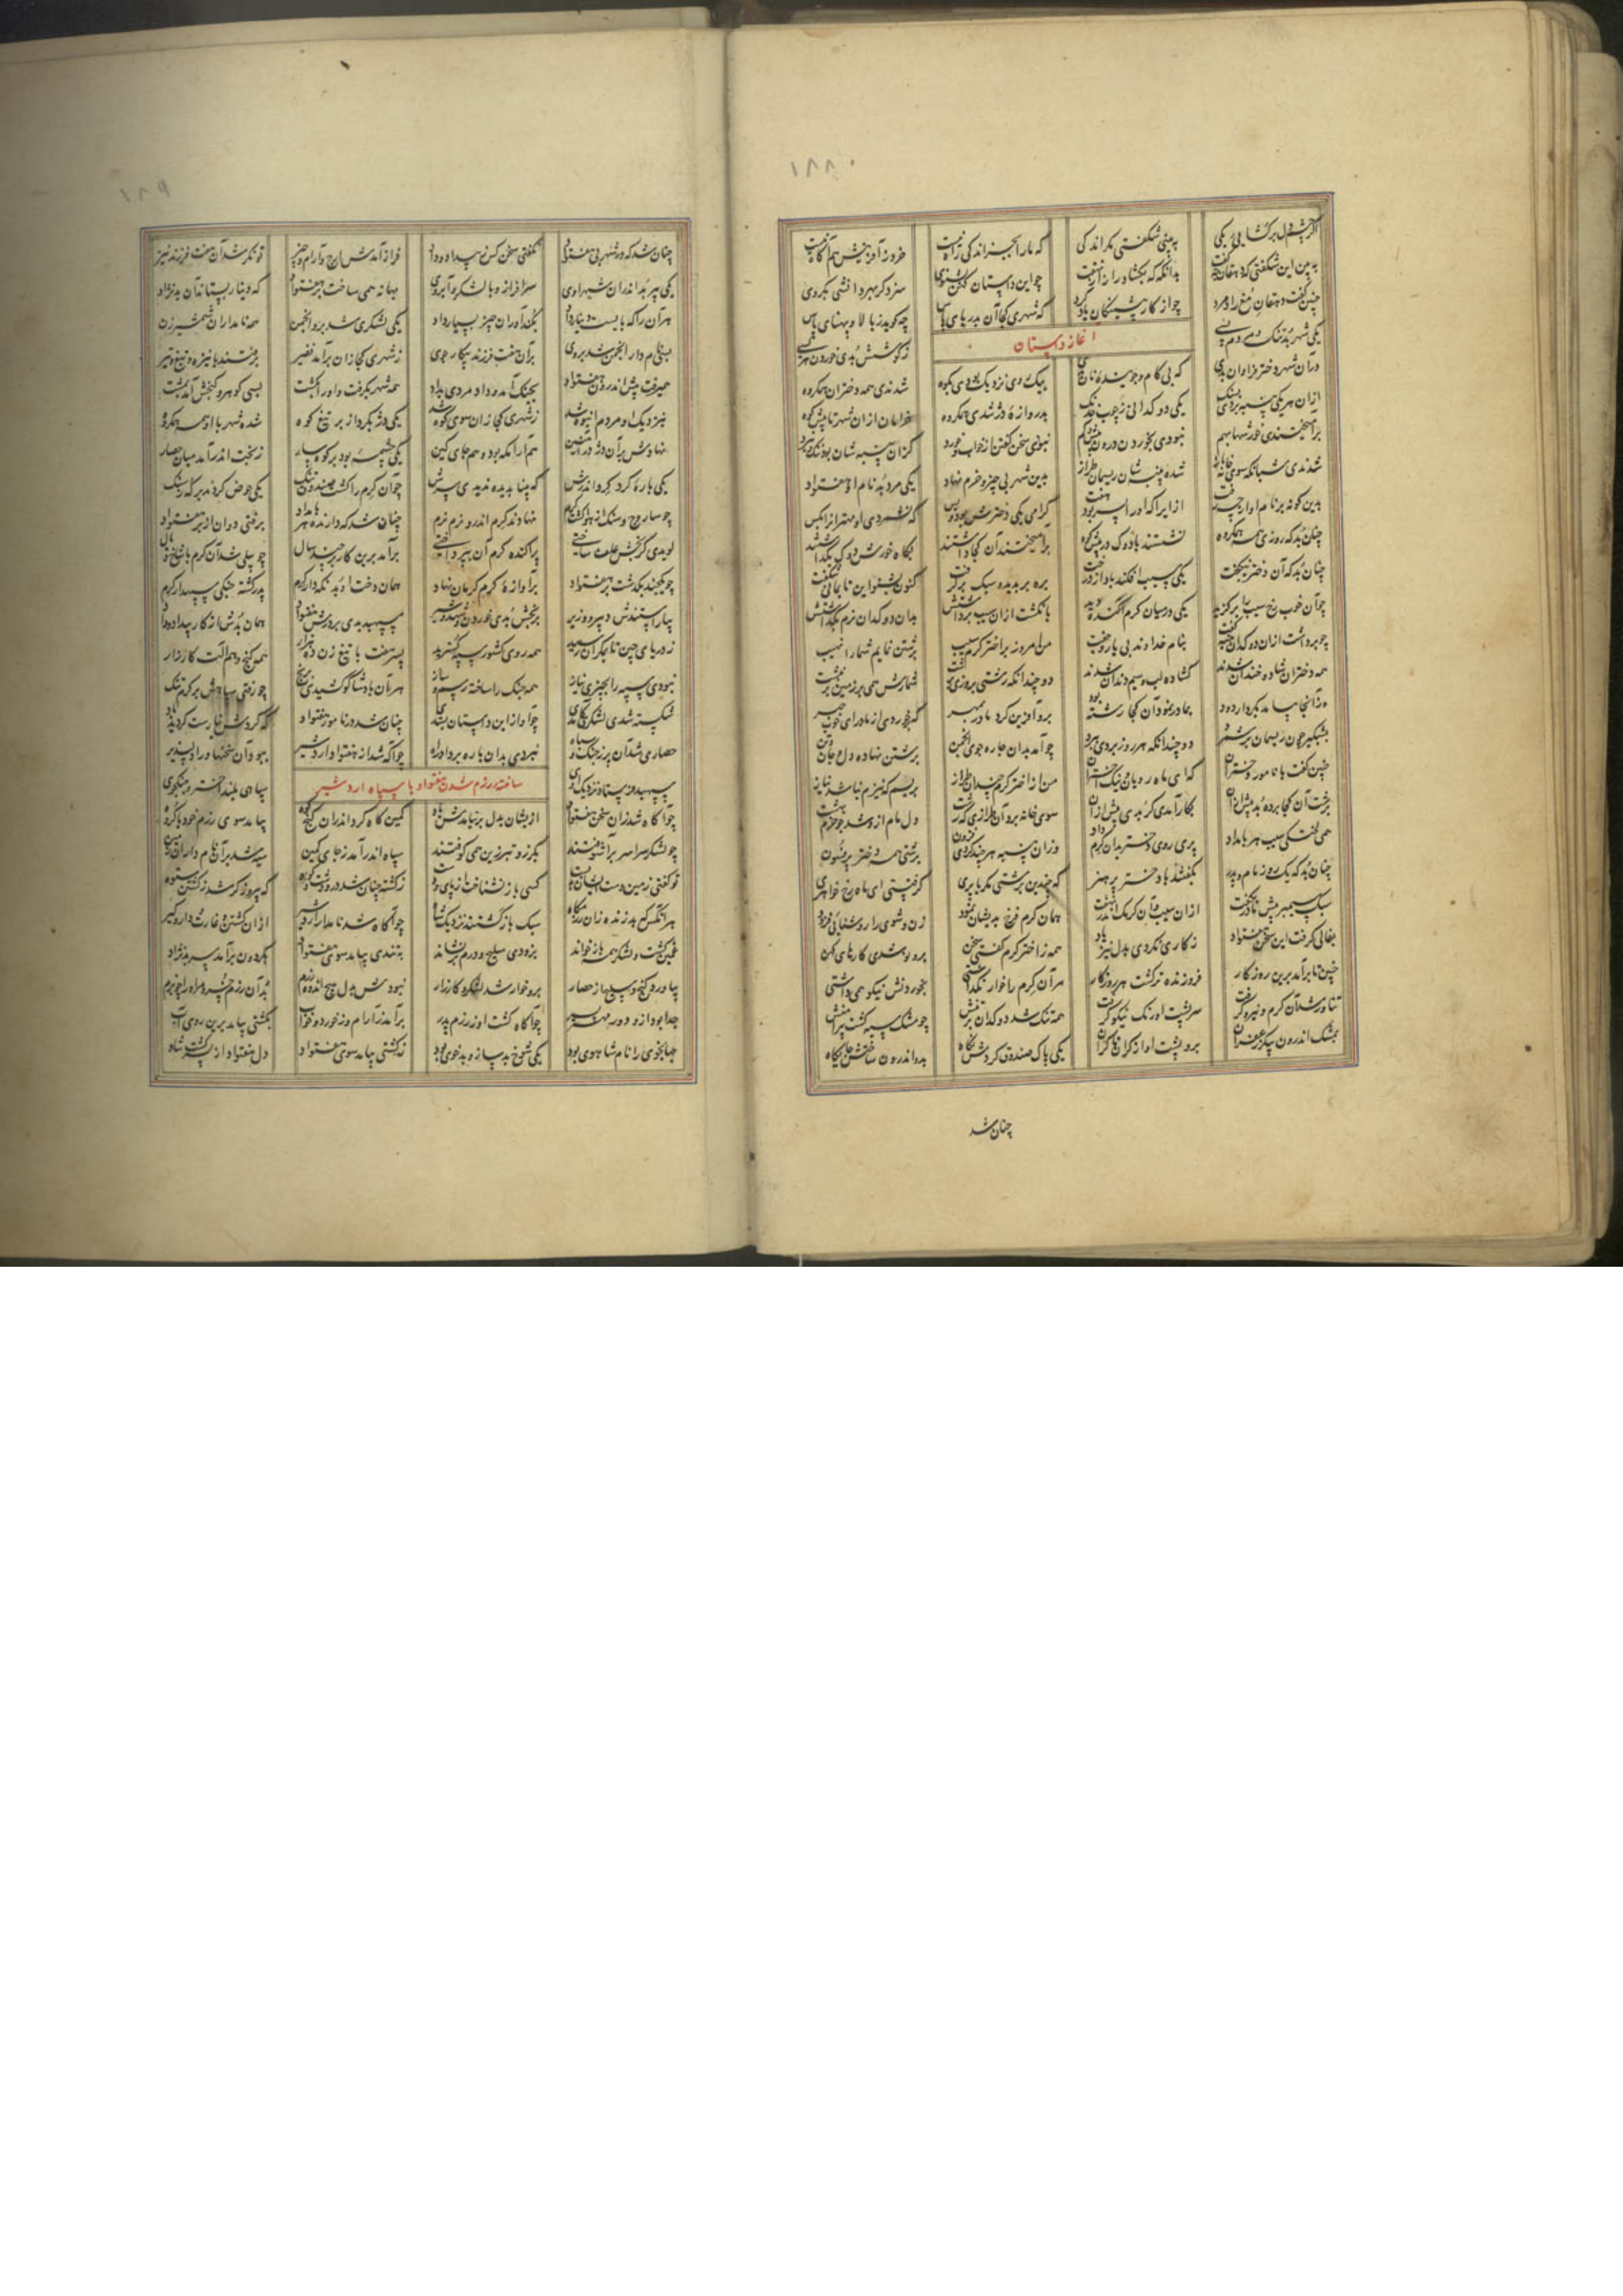 ۱۸۸
اگر چشم دل برگشایی یکی ببینی شگفتی مگر اندکی که ما را بجز اندکی زان نیست خرد زآفرینش هم آگاه نیست
ببین این شگفتی که دهقان چه گفت بدانگه که بگشاد راز از نهفت چو این داستان کهن بشنوی سزد گر بهر دانشی بگروی
چنین گفت دهقان مغ رادمرد چو از کار پیشینگان یاد کرد که شهری کجا آن بدریای پارس چه گوید ز بالا و پهنای پارس
آغاز داستان
یکی شهر بد تنگ و مردم بسی ز کوشش بدی خوردن هر کسی
در آن شهر دختر فراوان بدی که بی کام جوینده نان بدی بیک روی نزدیک بودی بکوه شدندی همه دختران همگروه
ازان هر یکی پنبه بردی بسنگ یکی دوکدانی ز چوب خدنگ بدروازه دژ شدی همگروه خرامان ازان شهر تا پیش کوه
برآمیختندی خورشها بهم نبودی بخوردن درون بیش و کم نبودی سخن گفتن از خواب و خورد گران پنبه شان بود ننگ و نبرد
شدندی شبانگه سوی خانه باز شده پنبه شان ریسمان طراز بدین شهر بی چیز و خرم نهاد یکی مرد بد نام او هفتواد
بدین گونه بر نام او از چه رفت ازایرا که او را پسر بود هفت گرامی یکی دخترش بود و بس که نشمردی او مهتران را بکس
چنان بد که روزی همه همگروه نشستند با دوک در پیش کوه برآمیختند آن کجا داشتند بگاه خورش دوک بگذاشتند
چنان بد که آن دختر نیکبخت یکی سیب افکنده باد از درخت بره بر بدید و سبک برگرفت کنون بشنو این تا بمانی شگفت
چو آن خوب رخ سیب را برگزید یکی در میان کرم آگنده دید بانگشت ازان سیب برداشتش بدان دوکدان نرم بگذاشتش
چو برداشت ازان دوکدان پنبه گفت بنام خداوند بی یار و جفت من امروز بر اختر کرم سیب برشتن نمایم شما را نهیب
همه دختران شاد و خندان شدند گشاده لب و سیم دندان شدند دو چندانکه رشتی بروزی برشت شمارش همی بر زمین برنوشت
وز آنجا بیامد بکردار دود بمادر نمود آن کجا رشته بود برو آفرین کرد مادر بمهر که برخوردی از مادر ای خوب چهر
بشبگیر چون ریسمان برشمرد دو چندانکه هر روز بردی ببرد چو آمد بدان چاره جوی انجمن برشتن نهاده دل و جان و تن
چنین گفت با نامور دختران که ای ماه رویان نیک اختران من از اختر کرم چندان طراز بریسم که نیزم نیاید نیاز
برشت آن کجا برده بد پیش ازان بکار آمدی گر بدی بیش ازان سوی خانه برد آن طرازی که رشت دل مام ازو شد چو خرم بهشت
همی لختکی سیب هر بامداد پری روی دختر بدان کرم داد وزان پنبه هر چند کردی فزون برشتی همی دختر پرفسون
چنان بد که یک روز مام و پدر بگفتند با دختر پر هنر که چندین برشتی مگر با پری گرفتستی ای ماه رخ خواهری
سبک سیمبر پیش مادر بگفت ازان سیب و آن کرمک اندر نهفت همان کرم فرخ بدیشان نمود زن و شوی را روشنائی فزود
بفالی گرفت این سخن هفتواد ز کاری نکردی بدل نیز یاد همه ز اختر کرم گفتی سخن برو نو شدی کارهای کهن
چنین تا برآمد برین روزگار فروزنده تر گشت هر روز کار مر آن کرم را خوار نگذاشتی بخوردنش نیکو همی داشتی
تناور شد آن کرم و نیرو گرفت سر و پشت او رنگ نیکو گرفت همه تنگ شد دوکدان بر تنش چو مشک سیه گشت پیراهنش
بمشک اندرون پیکر زعفران برو پشت او از کران تا کران یکی پاک صندوق کردش بدو اندرون ساختش جایگاه
چنان شد
۱۸۹
چنان شد که در شهر بی هفتواد نگفتی سخن کس ز بیداد و داد فراز آمدش ارج و آرام و چیز توانگر شد آن هفت فرزند نیز
یکی میر بد اندران شهر اوی سرافراز و با لشکر و آبروی بهانه همی ساخت بر هفتواد که دینار بستاند از بدنژاد
هر آن را که بایست دینار داد بکنداوران چیز بسیار داد یکی لشکری شد برو انجمن همه نامداران شمشیرزن
بسی نامدار انجمن شد بروی بران هفت فرزند پیکار جوی ز شهری کجاران برآمد نفیر برفتند با نیزه و تیغ و تیر
همی رفت پیش اندرون هفتواد بجنگ آمد و داد مردی بداد همه شهر بگرفت و او را بکشت بسی گوهر و گنجش آمد بمشت
بنزدیک او مردم انبوه شد ز شهری کجاران سوی کوه شد یکی دژ بکرد از بر تیغ کوه شده شهر با او همه همگروه
نهادش بر آن دژ در آهنین هم آرامگه بود و هم جای کین یکی چشمه بود بر کوهسار ز تخت اندر آمد میان حصار
یکی باره کرد گرد اندرش که بینا بدیده ندیدی سرش چو آن کرم را گشت صندوق تنگ یکی حوض کردند بر کوه سنگ
چو ساروج و سنگ از هوا گشت گرم نهادند کرم اندرو نرم نرم چنان شد که دارنده هر بامداد برفتی دوان از بر هفتواد
لویدی کرنجش علف ساختی پراگنده کرم آن بپرداختی برآمد برین کار بر چند سال چو پیلی شد آن کرم با شاخ و یال
چو یکچند بگذشت بر هفتواد بر آوازه کرم کرمان نهاد همان دخت او بد نگهدار کرم پدر گشته جنگی سپهدار کرم
بیاراستندش دبیر و وزیر برنجش بدی خوردن و شهد و شیر سپهبد بدی پرورش هفتواد همان پرسش از کار بیداد و داد
ز دریای چین تا بکرمان رسید همه روی کشور سپه گسترید پسر هفت با تیغ زن ده هزار همان گنج و هم آلت کارزار
نبودی سپه را بچیزی نیاز همه جنگ را ساخته ساز هر آن پادشا کو کشیدی چو رفتی سپاهش بر کرم تنگ
شکسته شدی لشکر کآمدی چو آواز این داستان بشندی چنان شد دژ نامور هفتواد که گردش نیارست گردید باد
حصاری شد آن پر ز جنگ و سپاه نبردی بدان باره بر باد راه چو آگه شد از هفتواد اردشیر نبود آن سخنها ورا دلپذیر
ساخته رزم شدن هفتواد با سپاه اردشیر
سپهبد فرستاد نزدیک اوی سپاهی بلند اختر و جنگجوی
چو آگاه شد زان سخن هفتواد ازیشان بدل بر نیامدش یاد کمین گاه کرد اندران کنج کوه بیامد سوی رزم خود با گروه
چو لشکر سراسر برآشوفتند بگرز و تبرزین همی کوفتند سپاه اندر آمد ز جای کمین سیه شد بر آن نامداران زمین
تو گفتی زمین دست ایشان ببست کسی باز نشناخت از پای دست ز کشته چنان شد در و دشت و کوه که پیروزگر شد ز کشتن ستوه
هر آنکس که بد زنده زان رزمگاه سبک باز گشتند نزدیک شاه چو آگاه شد نامدار اردشیر ازان کشتن و غارت و دار و گیر
غمین گشت و لشکر همه باز خواند بزودی سلیح و درم برفشاند بتندی بیامد سوی هفتواد بگردون برآمد سر بدنژاد
بیاورد گنج و سلیح از حصار برو خوار شد لشکر و کارزار نبودش بدل هیچ اندوه رزم بد آن رزم خسرو مر او را چو بزم
جدا بود ازو دور مهتر پسر چو آگاه گشت او ز رزم پدر برآمد ز آرام وز خورد و خواب بکشتی بیامد برین روی آب
جهانجوی را نام شاهوی بود یکی شوخ بدساز و بدخوی بود ز کشتی بیامد سوی هفتواد دل هفتواد از پسر گشت شاد